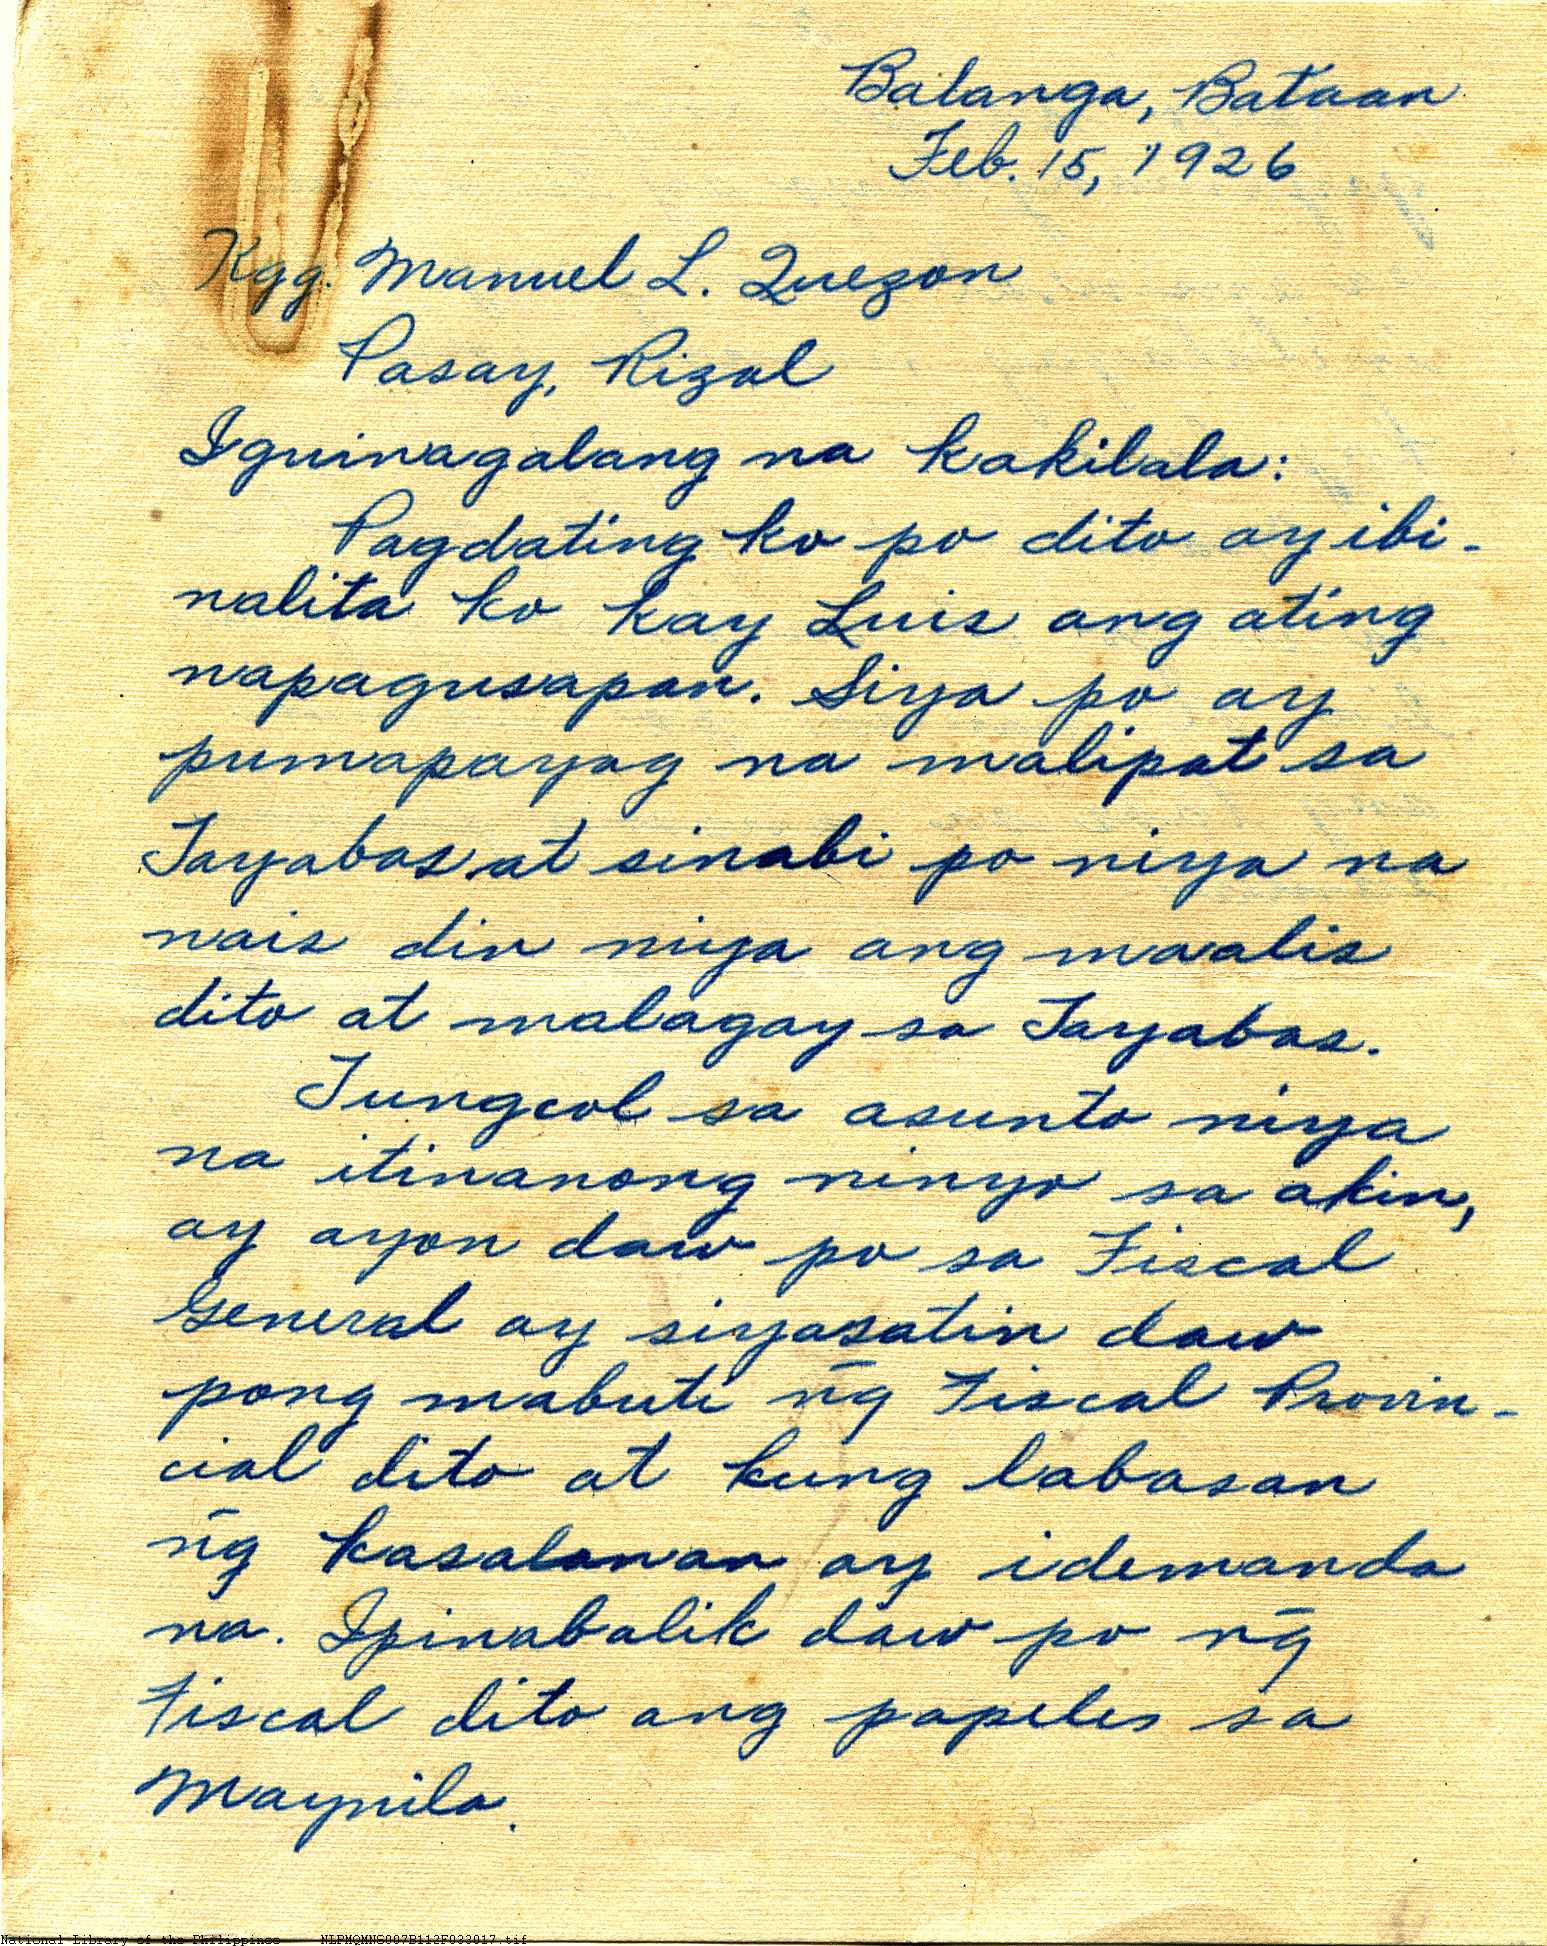 Balanga, Bataan
Feb. 15, 1926
Kgg. Manuel L. Quezon
Pasay, Rizal
Iguinagalang na kakilala:
Pagdating ko po dito ay ibi-
nalita ko kay Luis ang ating
napagusapan. Siya po ay
pumapayag na malipat sa
Tayabas at sinabi po niya na
nais din niya ang maalis
dito at malagay sa Tayabas.
Tungcol sa asunto niya
na itinanong ninyo sa akin,
ay ayon daw po sa Fiscal
General ay siyasatin daw
pong mabuti n̄g Fiscal Provin-
cial dito at kung labasan
n̄g kasalanan ay idemanda
na. Ipinabalik daw po n̄g
Fiscal dito ang papeles sa
Maynila.
National Library of the Philippines NLPMQMNS007B112F033017.tif